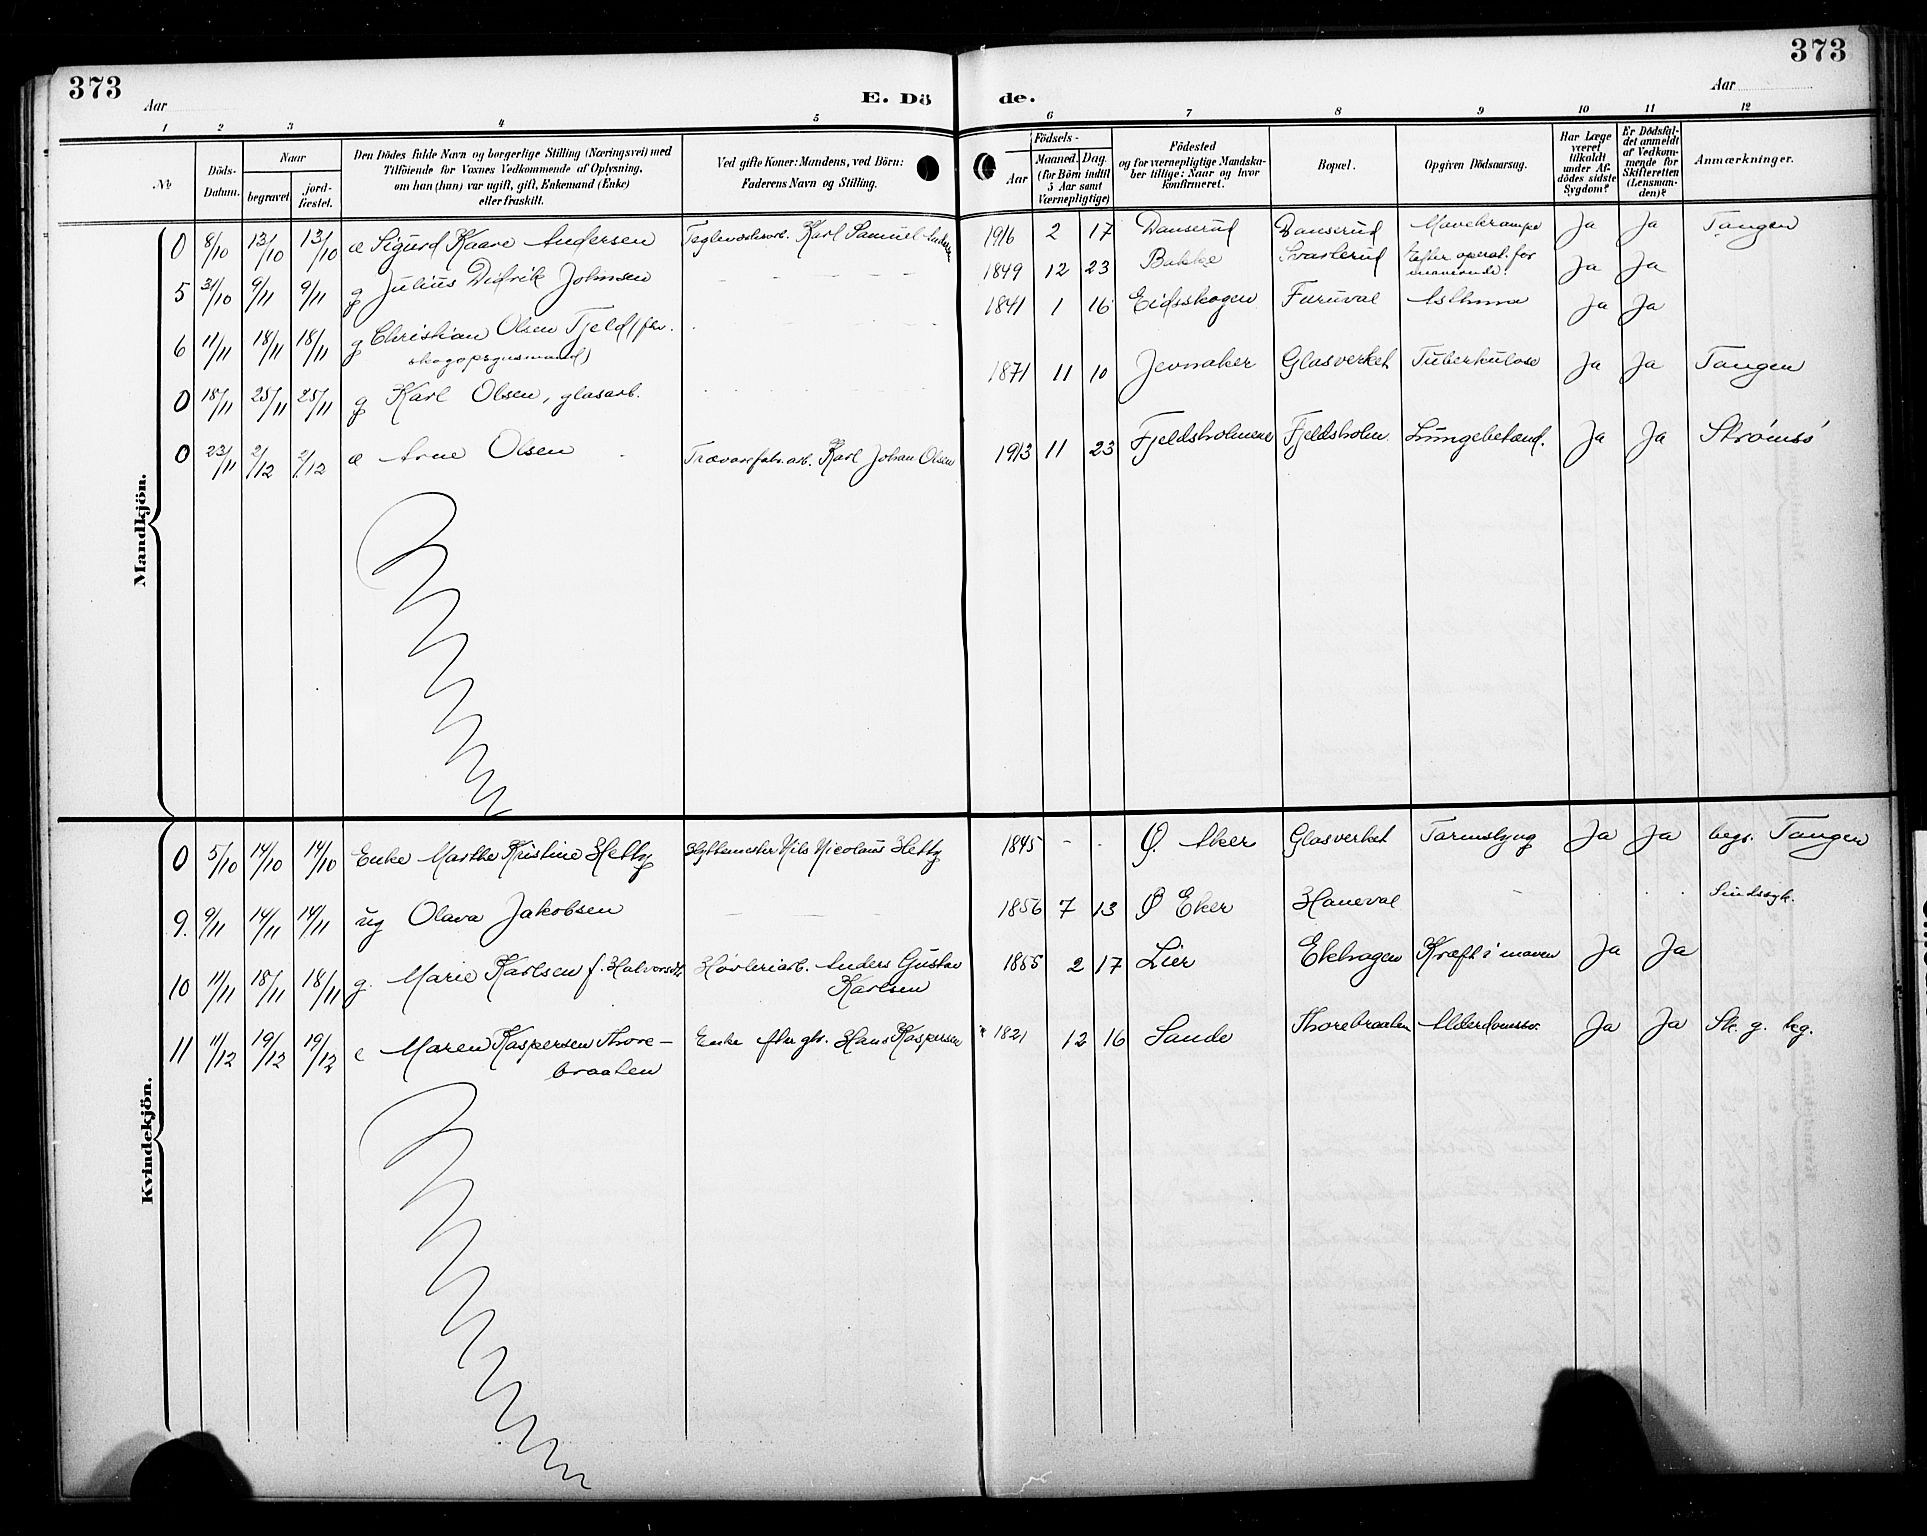 373
373
Aar
E. Dö
de.
Aar
1 2 3 4 5 6 7 8 9 10 11 12
No
Döds-Datum.
Naar
begravet
jord-fæstet.
Den Dödes fulde Navn og borgerlige Stilling (Næringsvei) med
Tilföiende for Voxnes Vedkommende af Oplysning,
om han (hun) var ugift, gift, Enkemand (Enke)
eller fraskilt.
Ved gifte Koner: Mandens, ved Börn:
Faderens Navn og Stilling.
Födsels-
Aar
Maaned. Dag.
(for Börn indtil
5 Aar samt
Værnepligtige)
Födested
og for værnepligtige Mandska-
ber tillige: Naar og hvor
konfirmeret.
Bopæl.
Opgiven Dödsaarsag.
Har Læge
været
tilkaldt
under Af-
dödes sidste
Sygdom?
Er Dödsfal-
det anmeldt
af Vedkom-
mende for
Skifteretten
(Lensman-
den)?
Anmærkninger.
Mandkjön.
0 8/10 13/10 13/10 e Sigurd Kaare Andersen Teglverksarb. Karl Samuel Andersen 1916 2 17 Danserud Danserud Mavekrampe Ja Ja Tangen
5 31/10 9/11 9/11 g Julius Didrik Johnsen 1849 12 23 Bakke Svarterud Efter operat. for Ja Ja
6 11/11 18/11 18/11 g Christian Olsen Fjeld (fhv. 1841 1 16 Eidsskogen Furuval Asthma Ja Ja
0 18/11 25/11 25/11 g Karl Olsen, glasarb. 1871 11 10 Jevnaker Glasverket Tuberkulose Ja Ja Tangen
0 23/11 2/12 2/12 e Arne Olsen Trævarefabr.arb. Karl Johan Olsen 1913 11 23 Fjeldsholmene Fjeldsholm. Lungebetænd. Ja Ja Strømsø
Kvindekjön.
0 5/10 14/10 14/10 Enke Marthe Kristine Hetty Hyttemester Nils Nicolaus Hetty 1845 - - Ø. Aker Glasverket Tarmslyng Ja Ja begr. Tangen
9. 9/11 14/11 14/11 ug Olava Jakobsen 1856 7 13 Ø Eker Haneval - Sindssyk.
10 11/11 18/11 18/11 g. Marie Karlsen f. Halvorsdt. Høvleriarb. Anders Gustav
Karlsen 1865 2 17 Lier Ekhagen Kræft i maven Ja Ja
11 11/12 19/12 19/12 e Maren Kaspersen Thore-
braaten Enke efter gbr. Hans Kaspersen 1821 12 16 Sande Thorebraaten Alderdomssv. Ja Ja Sk. g. beg.